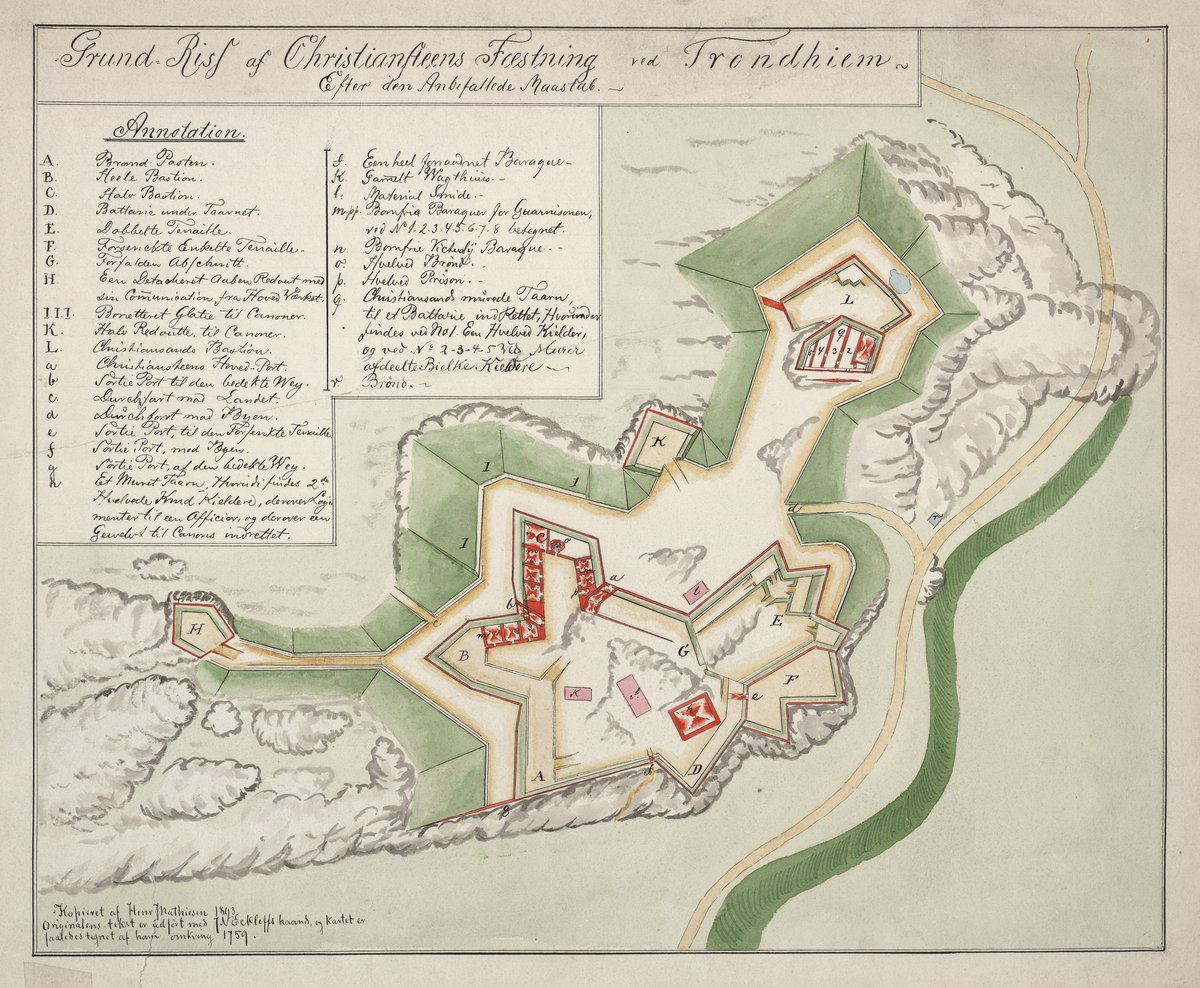 Grund-Riss af Christiansteens Fæstning ved Trondhiem
Efter den Anbefallede Maastab.
Annotation.
A. Brand Pasten.
B. Heele Bastion.
C. Halv Bastion.
D. Battarie under Taarnet.
E. Dobbelte Tenaille.
F. Forsenckte Enkelte Tenaille
G. Forfalden Abschnitt.
H Een Detacheret Aaben Redout med
sin Communication fra Hoved Værket.
I.I.I. Bonetteret Glatie til Canoner.
K. Halv Redoutte, til Canoner.
L. Christiansands Bastion.
a Christiansteens Hoved-Port.
b Sortie Port til den bedekte Wey.
c. Durchfart mod Landet.
d Durchfart mod Byen.
e Sortie Port, til den Forsenkte Tenaille
f Sortie Port, mod Byen.
g Sortie Port, af den bedekte Wey.
h Et Muret Taarn, Hvorudi findes 2de
Hvelvede Krud Kieldere, derover Logi
menter til een Officier, og derover een
Gewelv til Canons indrettet.
Een heel Baraque
K. Gamelt Wagthuus.
l. Material Smide.
m.pp. Bomfrie Baraquer for Guarnisonen,
ved No 1.2.3.4.5.6.7.8 betegnet.
n Bomfrie Baraque.
o. Hvelved Brönd.
p. Hvelved Prison.
q. Christiansands murede Taarn,
til et Battarie ind Rettet, Hvorunder
findes ved No 1. Een Hvelved Kielder,
og ved No 2-3-4-5 Murer
afdeelte Bielke Kieldere
r Brönd.
L
q
5 4 3 2 1
K
1
1
1
d
r
C
o
a
m
p
b
c
l
E
H
m
B
G
F
e
K
h
A
D
f
g
Kopieret af Henr Mathiesen 1893
Originalens tekst er udfört med J N Eckleffs haand, og kartet er
saaledes tegnet af ham omkring 1759.